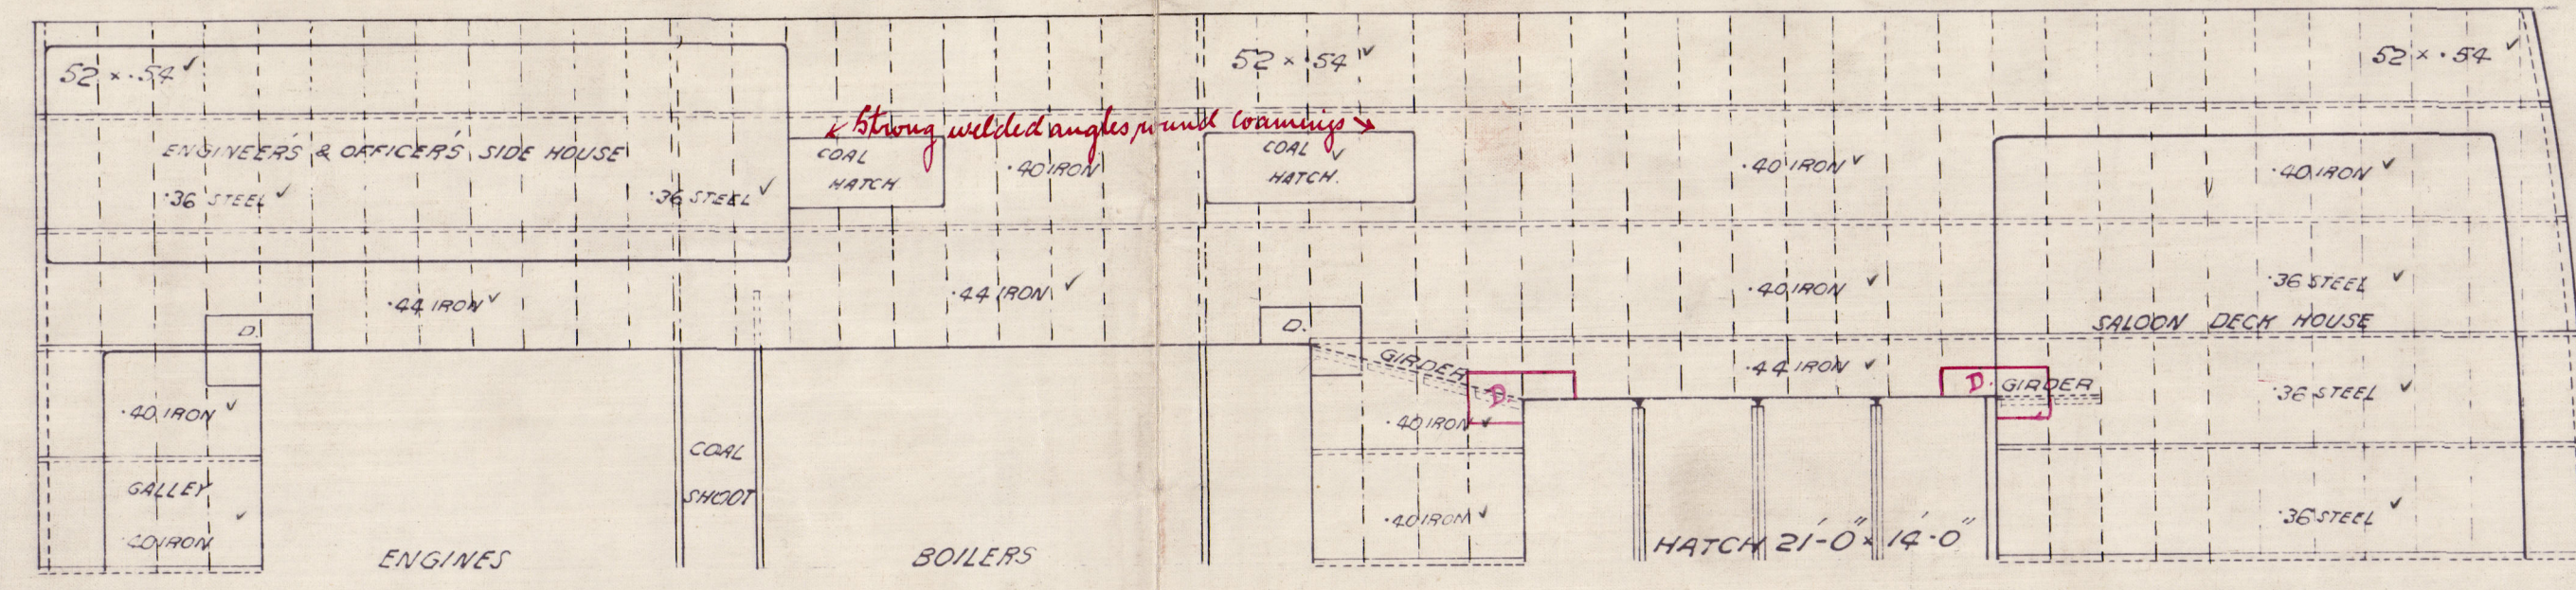 52 × .54 ✓
52 × .54 ✓
52 × .54 ✓
← Strong welded angles round coamings →
ENGINEER'S & OFFICER'S SIDE HOUSE
.36 STEEL ✓
.36 STEEL ✓
COAL
HATCH
.40 IRON
COAL ✓
HATCH.
.40 IRON ✓
.40 IRON ✓
.44 IRON ✓
.44 IRON ✓
.40 IRON ✓
.36 STEEL ✓
SALOON DECK HOUSE
D.
D.
GIRDER
D.
.44 IRON ✓
D.
GIRDER
.36 STEEL ✓
.40 IRON ✓
.40 IRON ✓
COAL
SHOOT
GALLEY
✓
.40 IRON
.40 IRON ✓
.36 STEEL ✓
HATCH 21'-0" × 14'-0"
ENGINES
BOILERS